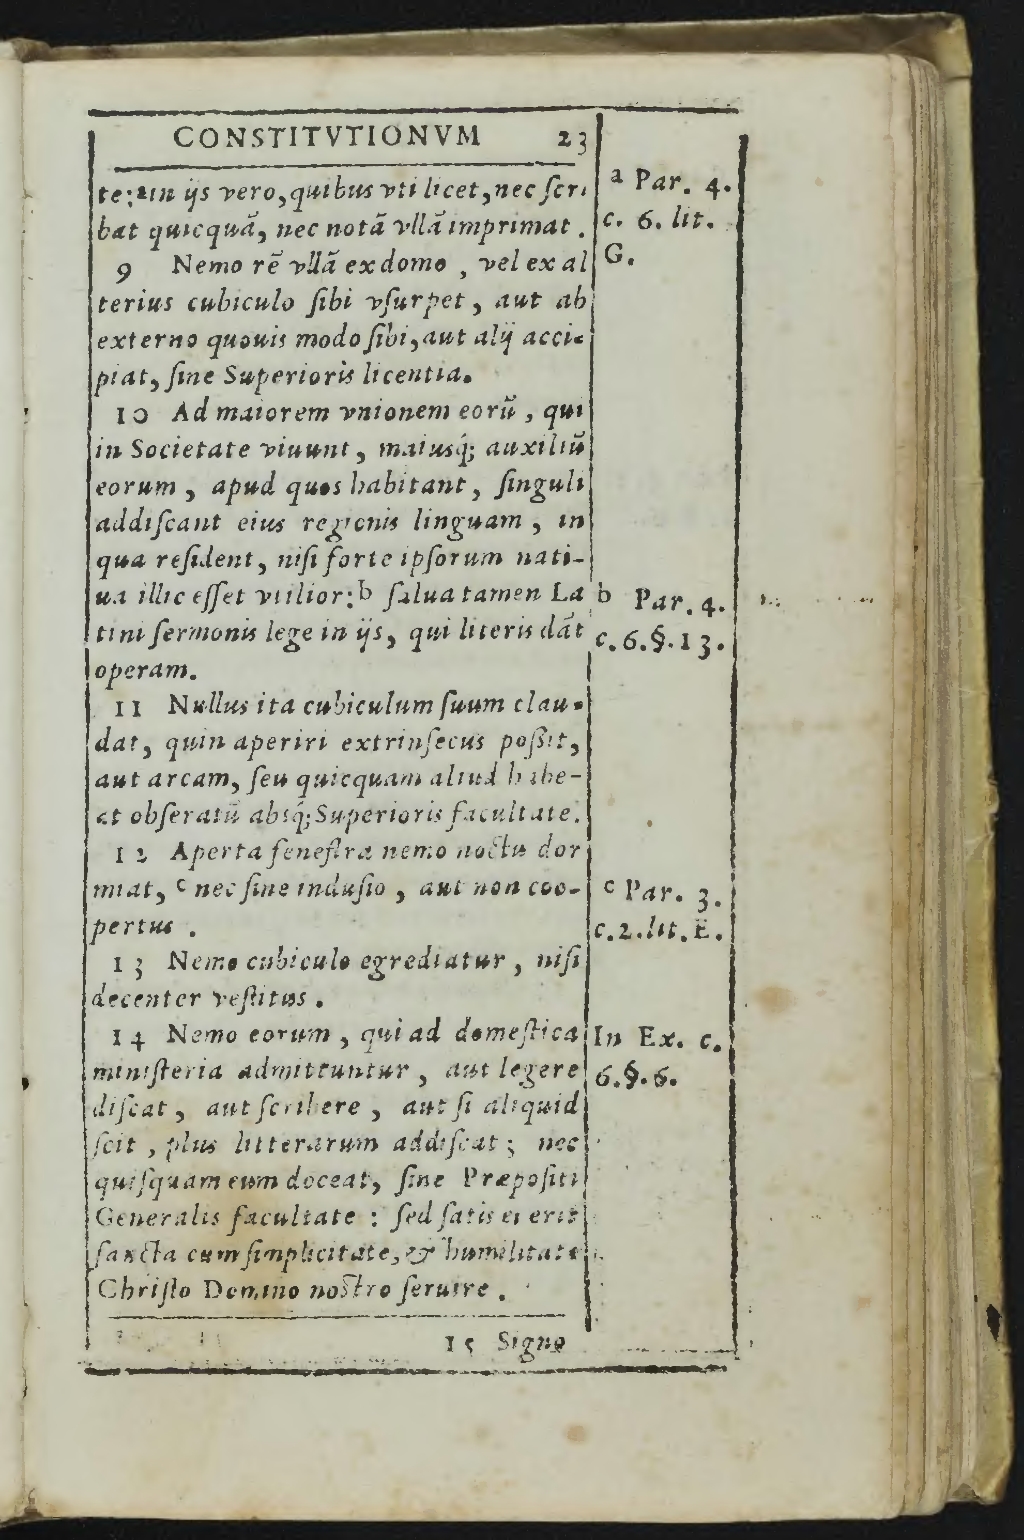 CONSTITVTIONVM 23
te: ᵃ in ijs vero, quibus vti licet, nec ſcri
bat quicquā, nec notā vllā imprimat.
9 Nemo rē vllā ex domo, vel ex al
terius cubiculo ſibi vſurpet, aut ab
externo quouis modo ſibi, aut alij acci-
piat, ſine Superioris licentia.
10 Ad maiorem vnionem eorū, qui
in Societate viuunt, maiusq́; auxiliū
eorum, apud quos habitant, ſinguli
addiſcant eius regionis linguam, in
qua reſident, niſi forte ipſorum nati-
ua illic eſſet vtilior: ᵇ ſalua tamen La
tini ſermonis lege in ijs, qui literis dāt
operam.
11 Nullus ita cubiculum ſuum clau-
dat, quin aperiri extrinſecus poſsit,
aut arcam, ſeu quicquam aliud habe-
at obſeratū absq́; Superioris facultate.
12 Aperta feneſtra nemo noctu dor
miat, ᶜ nec ſine induſio, aut non coo-
pertus.
13 Nemo cubiculo egrediatur, niſi
decenter veſtitus.
14 Nemo eorum, qui ad domeſtica
miniſteria admittuntur, aut legere
diſcat, aut ſcribere, aut ſi aliquid
ſcit, plus litterarum addiſcat; nec
quiſquam eum doceat, ſine Præpoſiti
Generalis facultate: ſed ſatis ei erit
ſancta cum ſimplicitate, & humilitate
Chriſto Domino noſtro ſeruire.
15 Signo
ᵃ Par. 4.
c. 6. lit.
G.
b Par. 4.
c. 6. §. 13.
ᶜ Par. 3.
c. 2. lit. E.
In Ex. c.
6. §. 6.